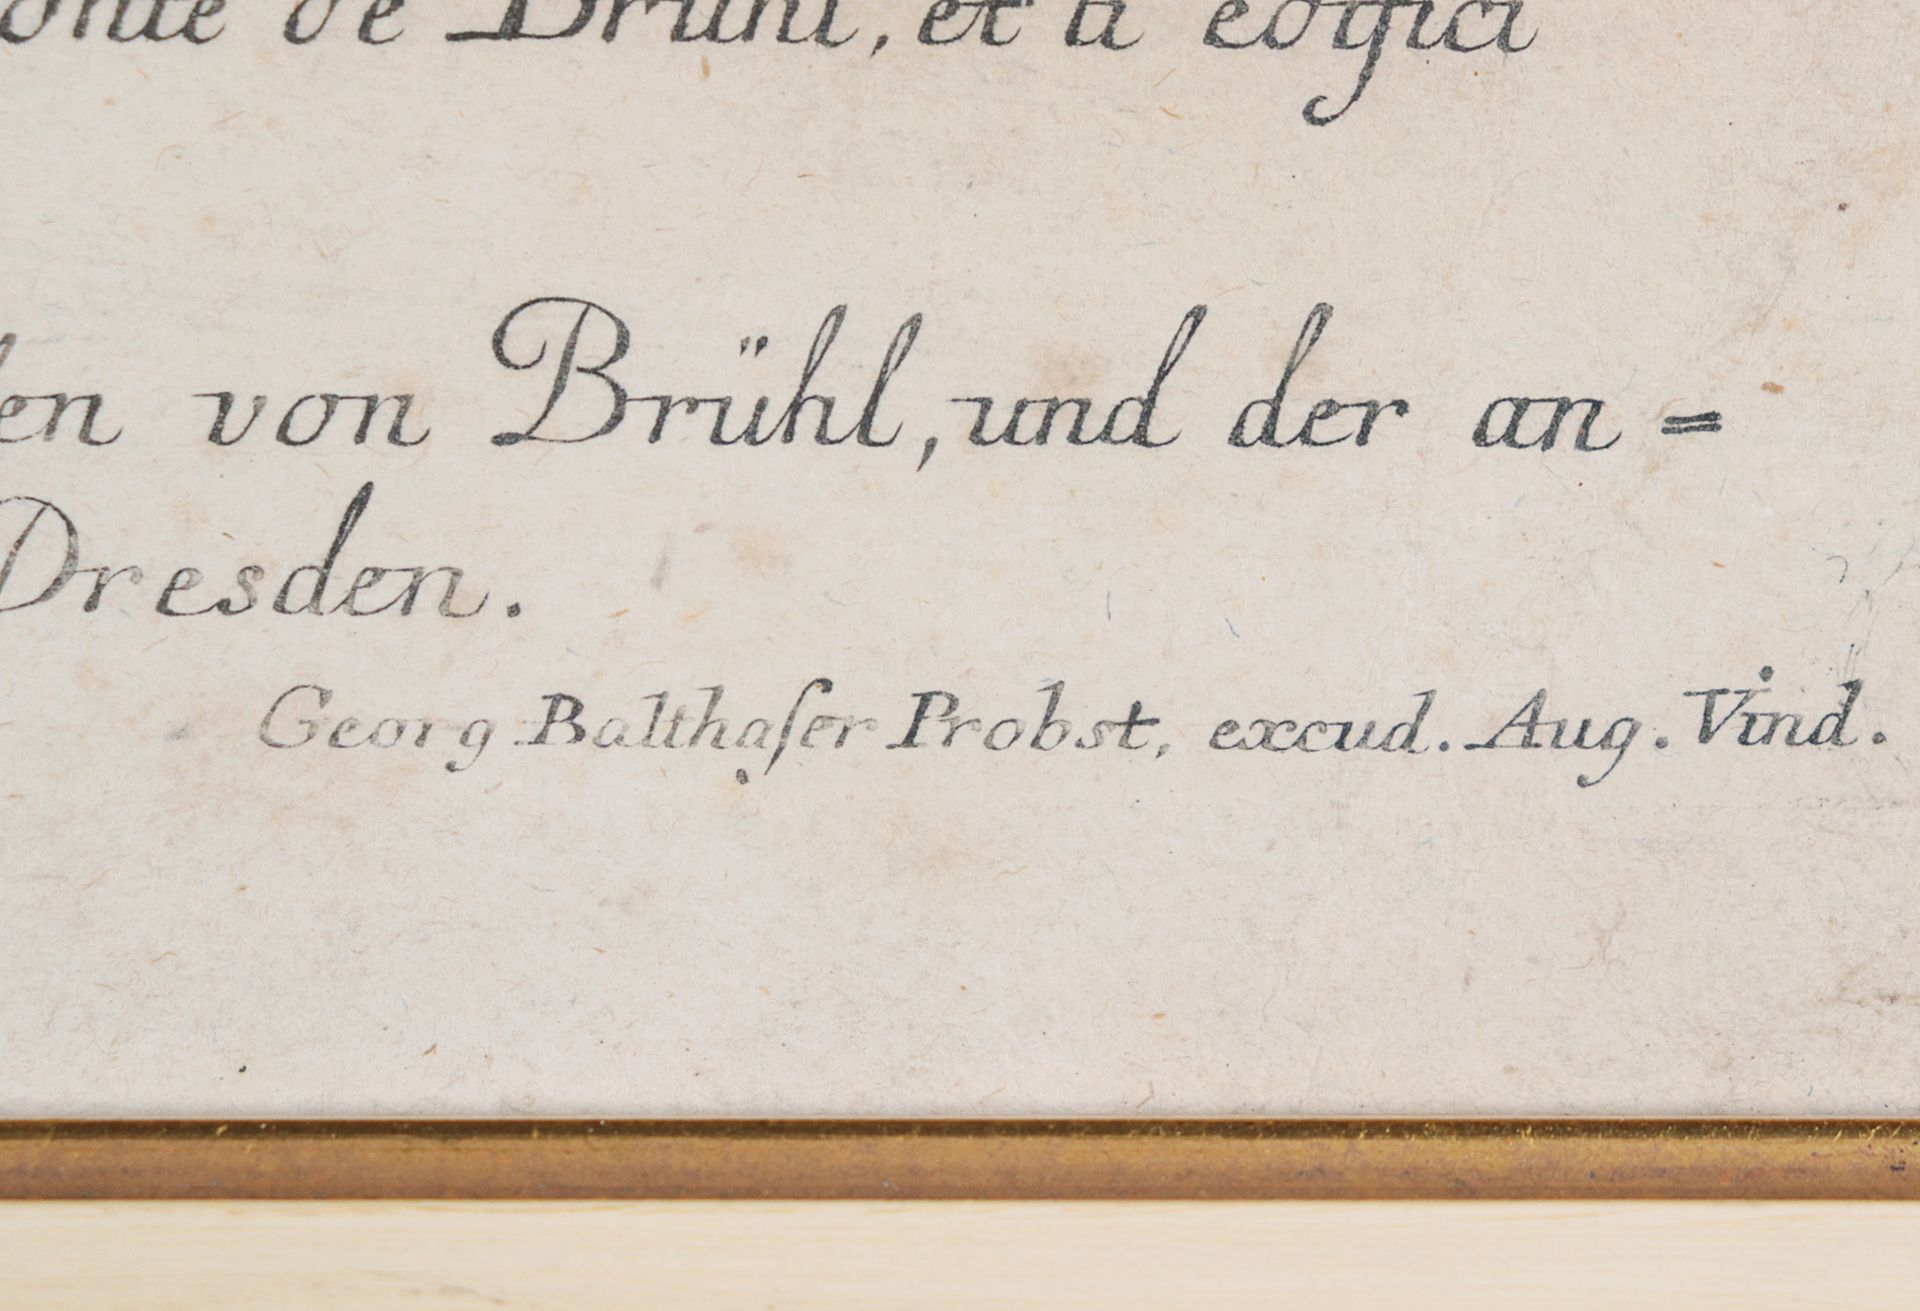 de Brühl, et li edifici
von Brühl, und der an=
Dresden.
Georg Balthaſer Probst, excud. Aug. Vind.